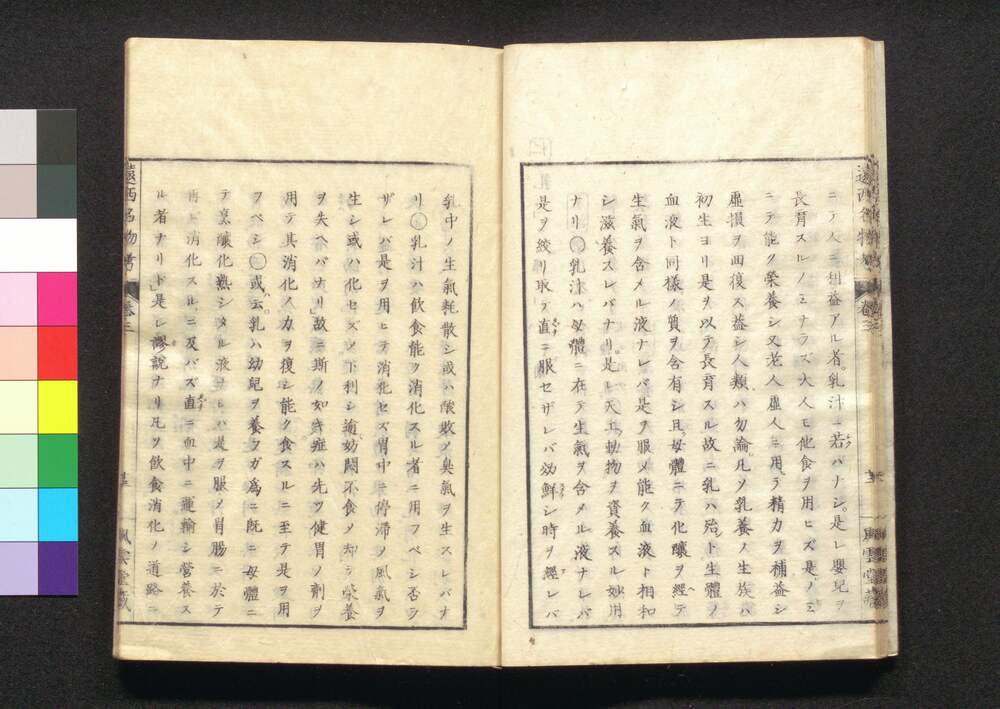 ニテ人ニ利益アル者。乳汁ニ若ハナシ。是レ嬰兒ヲ
長育スルノミナラズ大人モ他食ヲ用ヒズ是ノミ
ニテ能ク榮養シ又老人虚人ニ用テ精力ヲ補益シ
虚損ヲ回復ス益シ人類ハ勿論凡ソ乳養ノ生族ハ
初生ヨリ是ヲ以テ長育スル故ニ乳ハ殆ト生體ノ
血液ト同樣ノ質ヲ含有シ且母體ニテ化釀ヲ經テ
生氣ヲ含メル液ナレバ是ヲ服メ能ク血液ト相和
シ滋養スレバナリ。是レ天工動物ヲ資養スル妙用
ナリ○乳汁ハ母體ニ在テ生氣ヲ含メル液ナレバ
是ヲ絞リ取テ直ニ服セザレバ効鮮シ時ヲ經レバ
乳中ノ生氣耗散シ或ハ酸敗ノ臭氣ヲ生スレバナ
リ○乳汁ハ飲食能ク消化スル者ニ用フベシ否ラ
ザレバ是ヲ用ヒテ消化セズ胃中ニ停滯メ風氣ヲ
生シ或ハ化セズメ下利シ遂妨悶不食メ却テ榮養
ヲ失ヘバナリ故ニ斯ノ如キ症ハ先ツ健胃ノ劑ヲ
用テ其消化ノ力ヲ復シ能ク食スルニ至テ是ヲ用
フベシ○或云乳ハ幼兒ヲ養フガ爲ニ既ニ母體ニ
テ烹釀化熟シタル液ナレハ是ヲ服メ胃腸ニ於テ
再ビ消化スルニ及バズ直ニ血中ニ運輸シ營養ス
ル者ナリト是レ謬說ナリ凡ソ飲食消化ノ道路ニ
遠西名物考 卷三
風雲堂藏